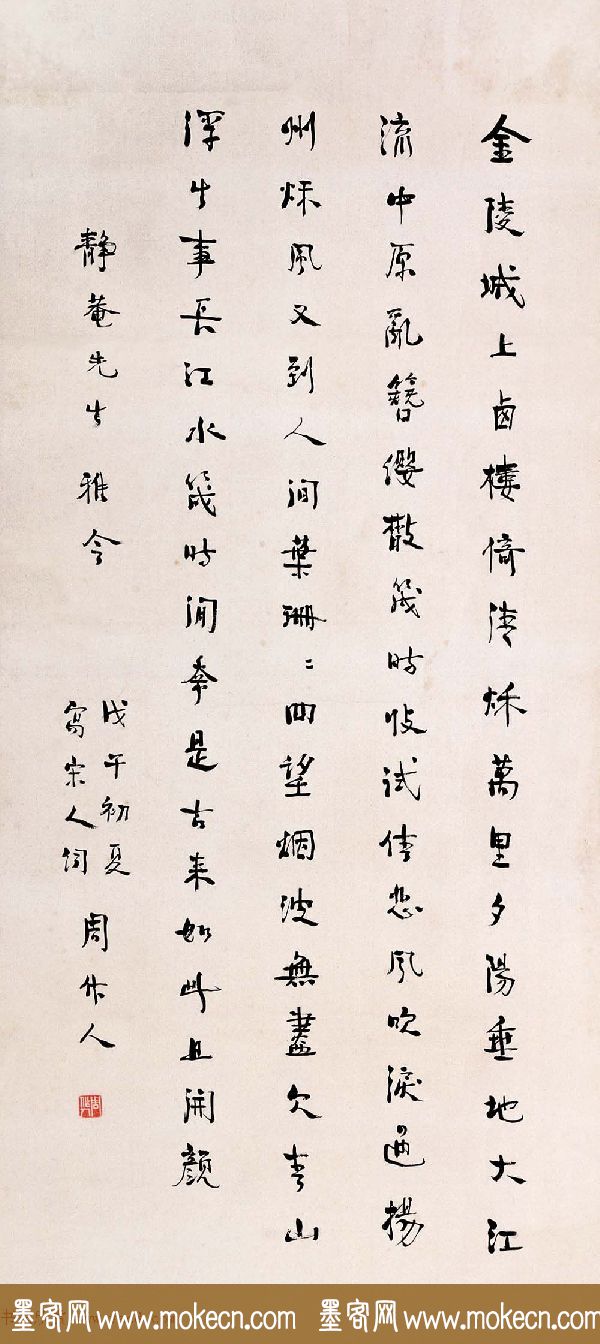 金陵城上西樓倚清秋萬里夕陽垂地大江
流中原亂簪纓散幾時收試倩悲風吹淚過揚
州秋風又到人間葉珊〻四望烟波無盡欠青山
浮生事長江水幾時閒幸是古來如此且開顏
靜菴先生雅令
戊午初夏
寫宋人詞
周作人
墨客网www.mokecn.com 墨客网www.mokecn.com